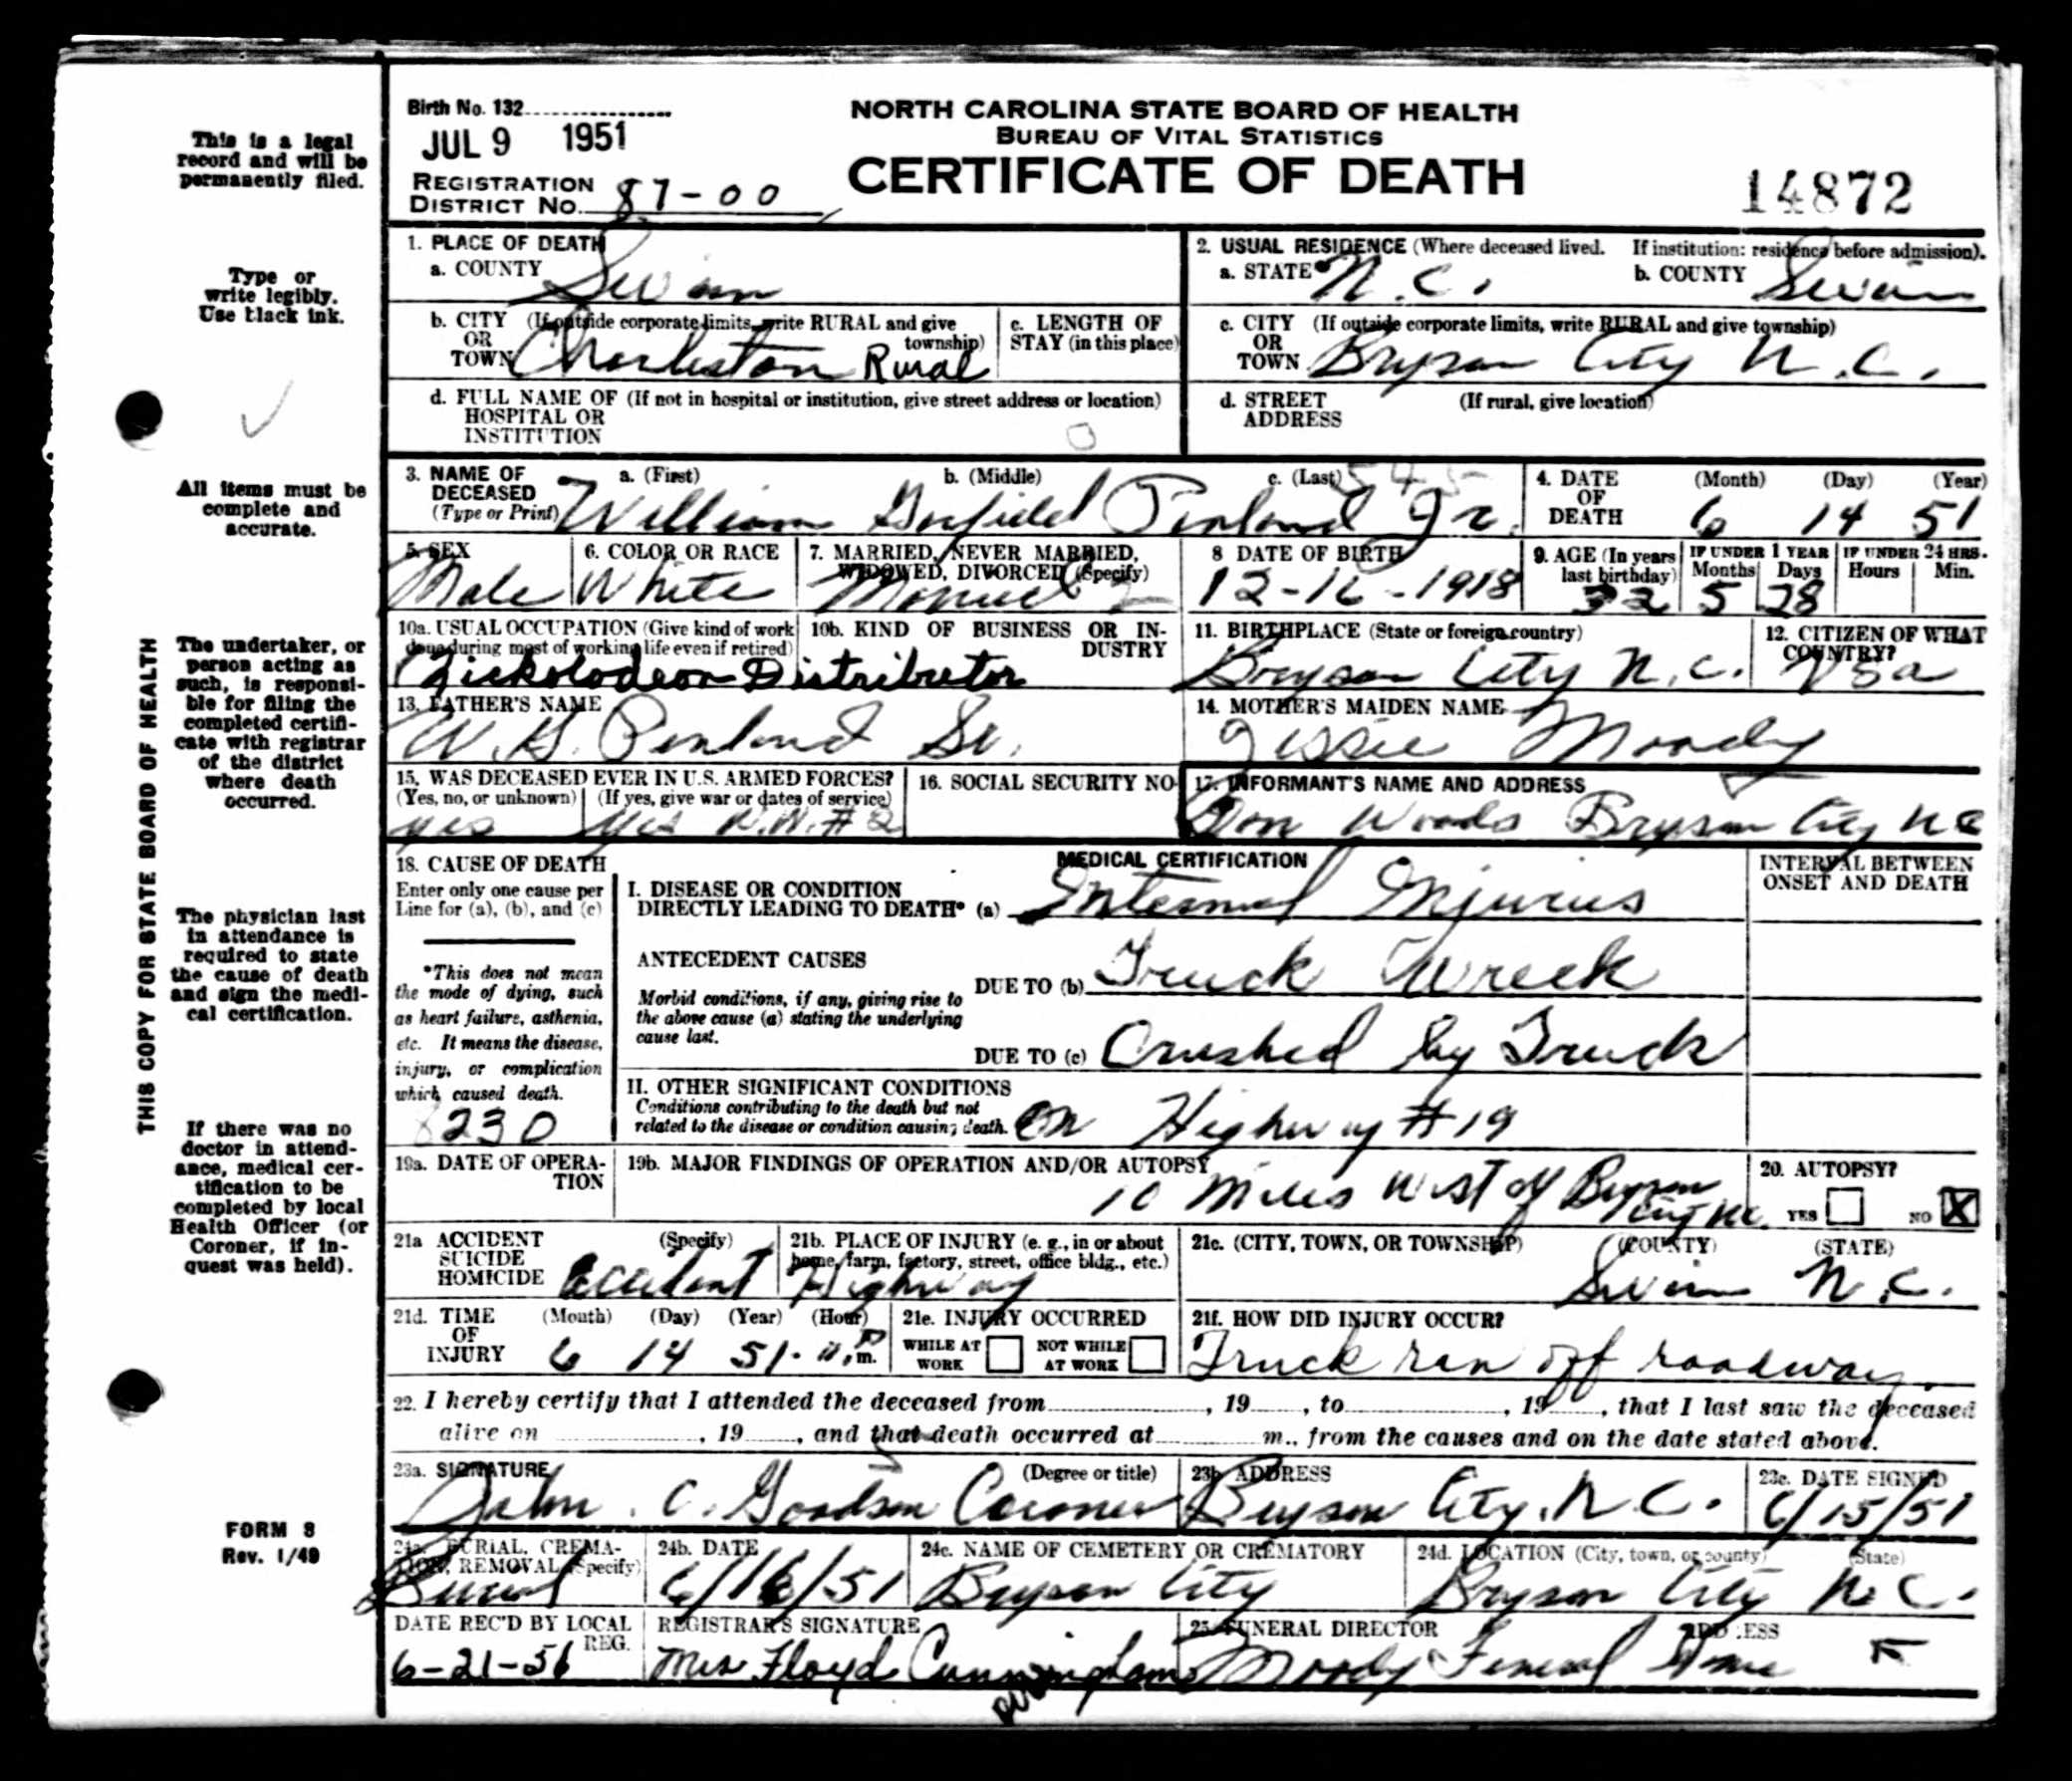 Birth No. 132
JUL 9 1951
REGISTRATION DISTRICT No. 87-00
NORTH CAROLINA STATE BOARD OF HEALTH
BUREAU OF VITAL STATISTICS
CERTIFICATE OF DEATH
14872
This is a legal record and will be permanently filed.
Type or write legibly. Use black ink.
All items must be complete and accurate.
The undertaker, or person acting as such, is responsible for filing the completed certificate with registrar of the district where death occurred.
The physician last in attendance is required to state the cause of death and sign the medical certification.
If there was no doctor in attendance, medical certification to be completed by local Health Officer (or Coroner, if inquest was held).
THIS COPY FOR STATE BOARD OF HEALTH
FORM 8
Rev. 1/49
1. PLACE OF DEATH
a. COUNTY Swain
b. CITY OR TOWN (If outside corporate limits, write RURAL and give township) Charleston Rural
c. LENGTH OF STAY (in this place)
d. FULL NAME OF HOSPITAL OR INSTITUTION (If not in hospital or institution, give street address or location)
2. USUAL RESIDENCE (Where deceased lived. If institution: residence before admission).
a. STATE N.C.
b. COUNTY Swain
c. CITY OR TOWN (If outside corporate limits, write RURAL and give township) Bryson City N.C.
d. STREET ADDRESS (If rural, give location)
3. NAME OF DECEASED (Type or Print) a. (First) b. (Middle) c. (Last) 545
William Garfield Penland Jr.
4. DATE OF DEATH (Month) (Day) (Year) 6 14 51
5. SEX Male
6. COLOR OR RACE White
7. MARRIED, NEVER MARRIED, WIDOWED, DIVORCED (Specify) Married
8 DATE OF BIRTH 12-16-1918
9. AGE (In years last birthday) 32
IF UNDER 1 YEAR Months 5 Days 28
IF UNDER 24 HRS. Hours Min.
10a. USUAL OCCUPATION (Give kind of work done during most of working life even if retired)
10b. KIND OF BUSINESS OR INDUSTRY
Nickolodeon Distributor
11. BIRTHPLACE (State or foreign country) Bryson City N.C.
12. CITIZEN OF WHAT COUNTRY? USA
13. FATHER'S NAME W.G. Penland Sr.
14. MOTHER'S MAIDEN NAME Jessie Moody
15. WAS DECEASED EVER IN U.S. ARMED FORCES?
(Yes, no, or unknown) (If yes, give war or dates of service)
yes yes W.W.#2
16. SOCIAL SECURITY NO.
17. INFORMANT'S NAME AND ADDRESS
Don Woods Bryson City NC
18. CAUSE OF DEATH
Enter only one cause per Line for (a), (b), and (c)
*This does not mean the mode of dying, such as heart failure, asthenia, etc. It means the disease, injury, or complication which caused death.
8230
MEDICAL CERTIFICATION
INTERVAL BETWEEN ONSET AND DEATH
I. DISEASE OR CONDITION DIRECTLY LEADING TO DEATH* (a) Internal Injuries
ANTECEDENT CAUSES
Morbid conditions, if any, giving rise to the above cause (a) stating the underlying cause last.
DUE TO (b) Truck Wreck
DUE TO (c) Crushed by Truck
II. OTHER SIGNIFICANT CONDITIONS
Conditions contributing to the death but not related to the disease or condition causing death. On Highway #19
19a. DATE OF OPERATION
19b. MAJOR FINDINGS OF OPERATION AND/OR AUTOPSY
10 Miles West of Bryson City NC.
20. AUTOPSY? YES NO X
21a ACCIDENT SUICIDE HOMICIDE (Specify) Accident
21b. PLACE OF INJURY (e. g., in or about home, farm, factory, street, office bldg., etc.) Highway
21c. (CITY, TOWN, OR TOWNSHIP) (COUNTY) (STATE)
Swain N.C.
21d. TIME OF INJURY (Month) (Day) (Year) (Hour) 6 14 51. 11. P m.
21e. INJURY OCCURRED WHILE AT WORK NOT WHILE AT WORK
21f. HOW DID INJURY OCCUR?
Truck ran off roadway.
22. I hereby certify that I attended the deceased from , 19 , to , 19 , that I last saw the deceased
alive on , 19 , and that death occurred at m., from the causes and on the date stated above.
23a. SIGNATURE (Degree or title) John. C. Goodson Coroner
23b. ADDRESS Bryson City, N.C.
23c. DATE SIGNED 6/15/51
24a. BURIAL, CREMATION, REMOVAL (Specify) Burial
24b. DATE 6/16/51
24c. NAME OF CEMETERY OR CREMATORY Bryson City
24d. LOCATION (City, town, or county) (State) Bryson City N.C.
DATE REC'D BY LOCAL REG. 6-21-51
REGISTRAR'S SIGNATURE Mrs Floyd Cunningham
25. FUNERAL DIRECTOR ADDRESS
Moody Funeral Home